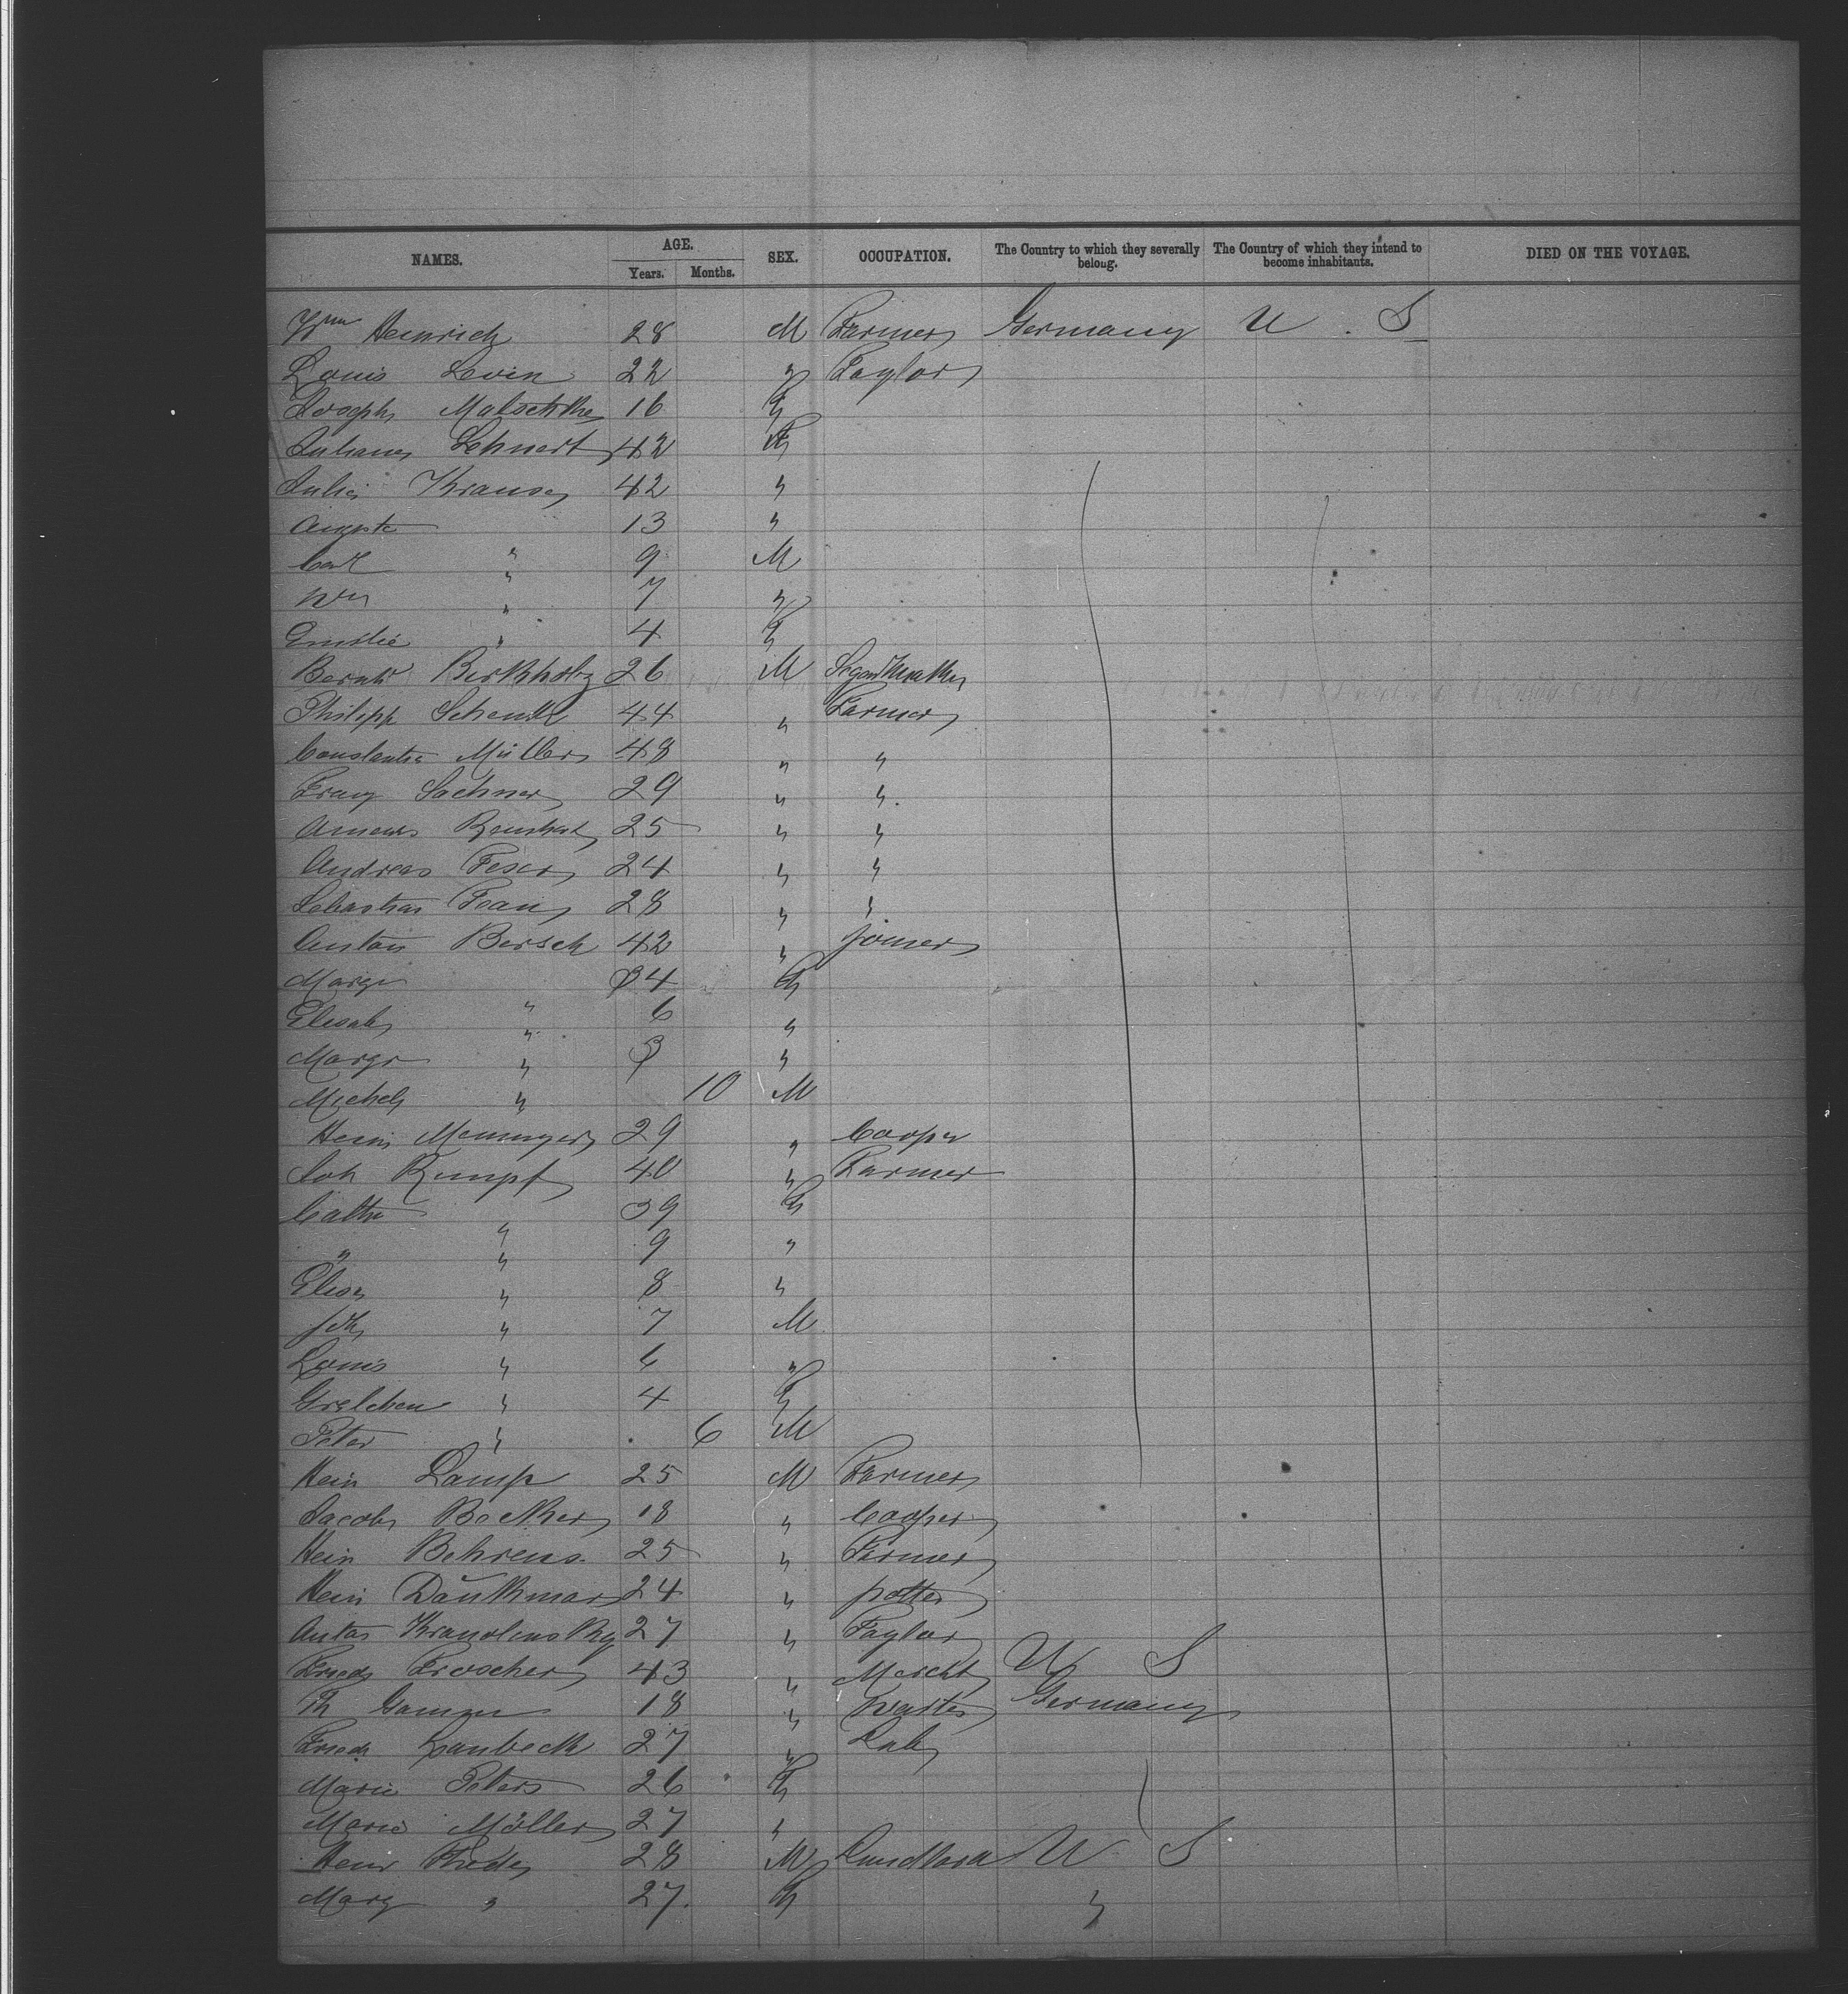 NAMES. AGE. SEX. OCCUPATION. The Country to which they severally belong. The Country of which they intend to become inhabitants. DIED ON THE VOYAGE.
Years. Months.
Wm Heinrich 28 M Farmer Germany U. S
Louis Levin 22 " Taylor
Joseph 16 F
Lehnert 42 F
Julia Krause 42 "
Auguste " 13 "
Carl " 9 M
Wm " 7 "
Emilie " 4 F
Bernh Birkholz 26 M
Philipp Schenk 44 " Farmer
Constantin Müller 48 " "
Franz Lachner 29 " "
25 " "
Andreas 24 " "
Sebastian 28 " "
Anton Bersch 42 " joiner
Margr " 34 F
Elisab " 6 "
Margr " 3 "
Michel " 10 M
Heinr 29 " Cooper
Joh Rumpf 40 " Farmer
Cathr " 39 F
" " 9 "
Elise " 8 "
Joh " 7 M
Louis " 6 "
Gretchen " 4 F
Peter " 6 M
Hein Lamp 25 M Farmer
Jacob Becker 18 " Cooper
Hein Behrens 25 " Farmer
Hein 24 " potter
Anton 27 " Taylor
Friedr Froscher 43 " Mercht U S
Th 18 " waiter Germany
Friedr 27 " Lab
Marie Peters 26 F
Marie Möller 27 "
Heinr Thede 28 M U S
Marg " 27 F "